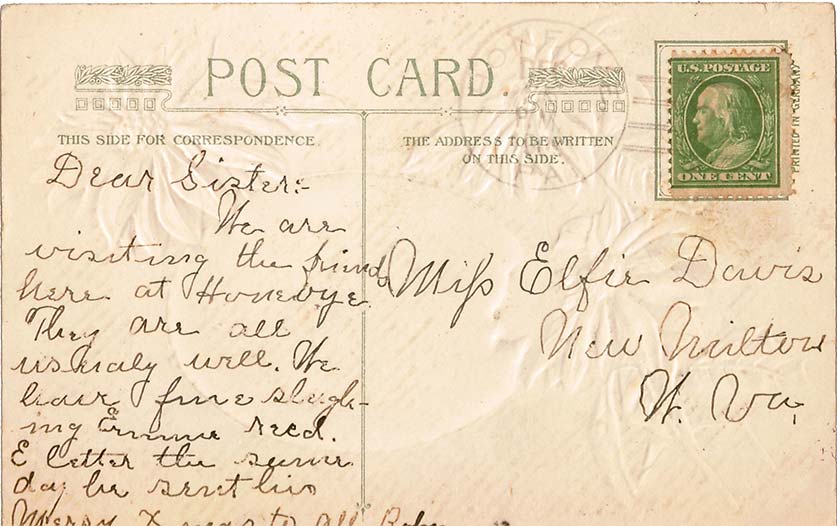 POST CARD.
THIS SIDE FOR CORRESPONDENCE.
THE ADDRESS TO BE WRITTEN
ON THIS SIDE.
U.S. POSTAGE
ONE CENT
PRINTED IN GERMANY
PA
Dear Sister:-
We are
visiting the friends
here at
They are all
usualy well. We
have fine sleigh-
ing recd.
E letter the same
day he sent his
Merry Xmas to All
Miss Elfie Davis
New Milton
W. Va,